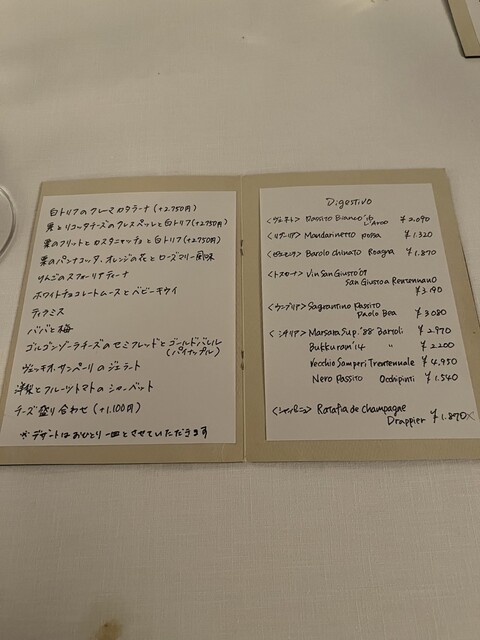 白トリフのクレーマカタラーナ (+2,750円)
栗とリコッタチーズのクレスペッレと白トリフ(+2,750円)
栗のフリットとカスタニャッチョと白トリフ(+2,750円)
栗のパンナコッタ、オレンジの花とローズマリー風味
りんごのスフォーリアティーナ
ホワイトチョコレートムースとベビーキウイ
ティラミス
ババと梅
ゴルゴンゾーラチーズのセミフレッドとゴールドバレル
(パイナップル)
ヴェッキオ・サンペーリのジェラート
洋梨とフルーツトマトのシャーベット
チーズ盛り合わせ (+1,100円)
※デザートはおひとり一皿とさせていただきます
Digestivo
<ヴェネト> Passito Bianco '16 L'Arco ¥2.090
<リグーリア> Mandarinetto possa ¥1.320
<ピエモンテ> Barolo chinato Roagna ¥1.870
<トスカーナ> Vin San Giusto '07
San Giusto a Rentennano
¥3.190
<ウンブリア> Sagrantino Passito
Paolo Bea ¥3.080
<シチリア> Marsara Sup. '88 Bartoli ¥2.970
Bukkuram '14 〃 ¥2.200
Vecchio Samperi Trentennale ¥4.950
Nero Passito Occhipinti ¥1.540
<シャンパーニュ> Ratafia de champagne
Drappier ¥1.870